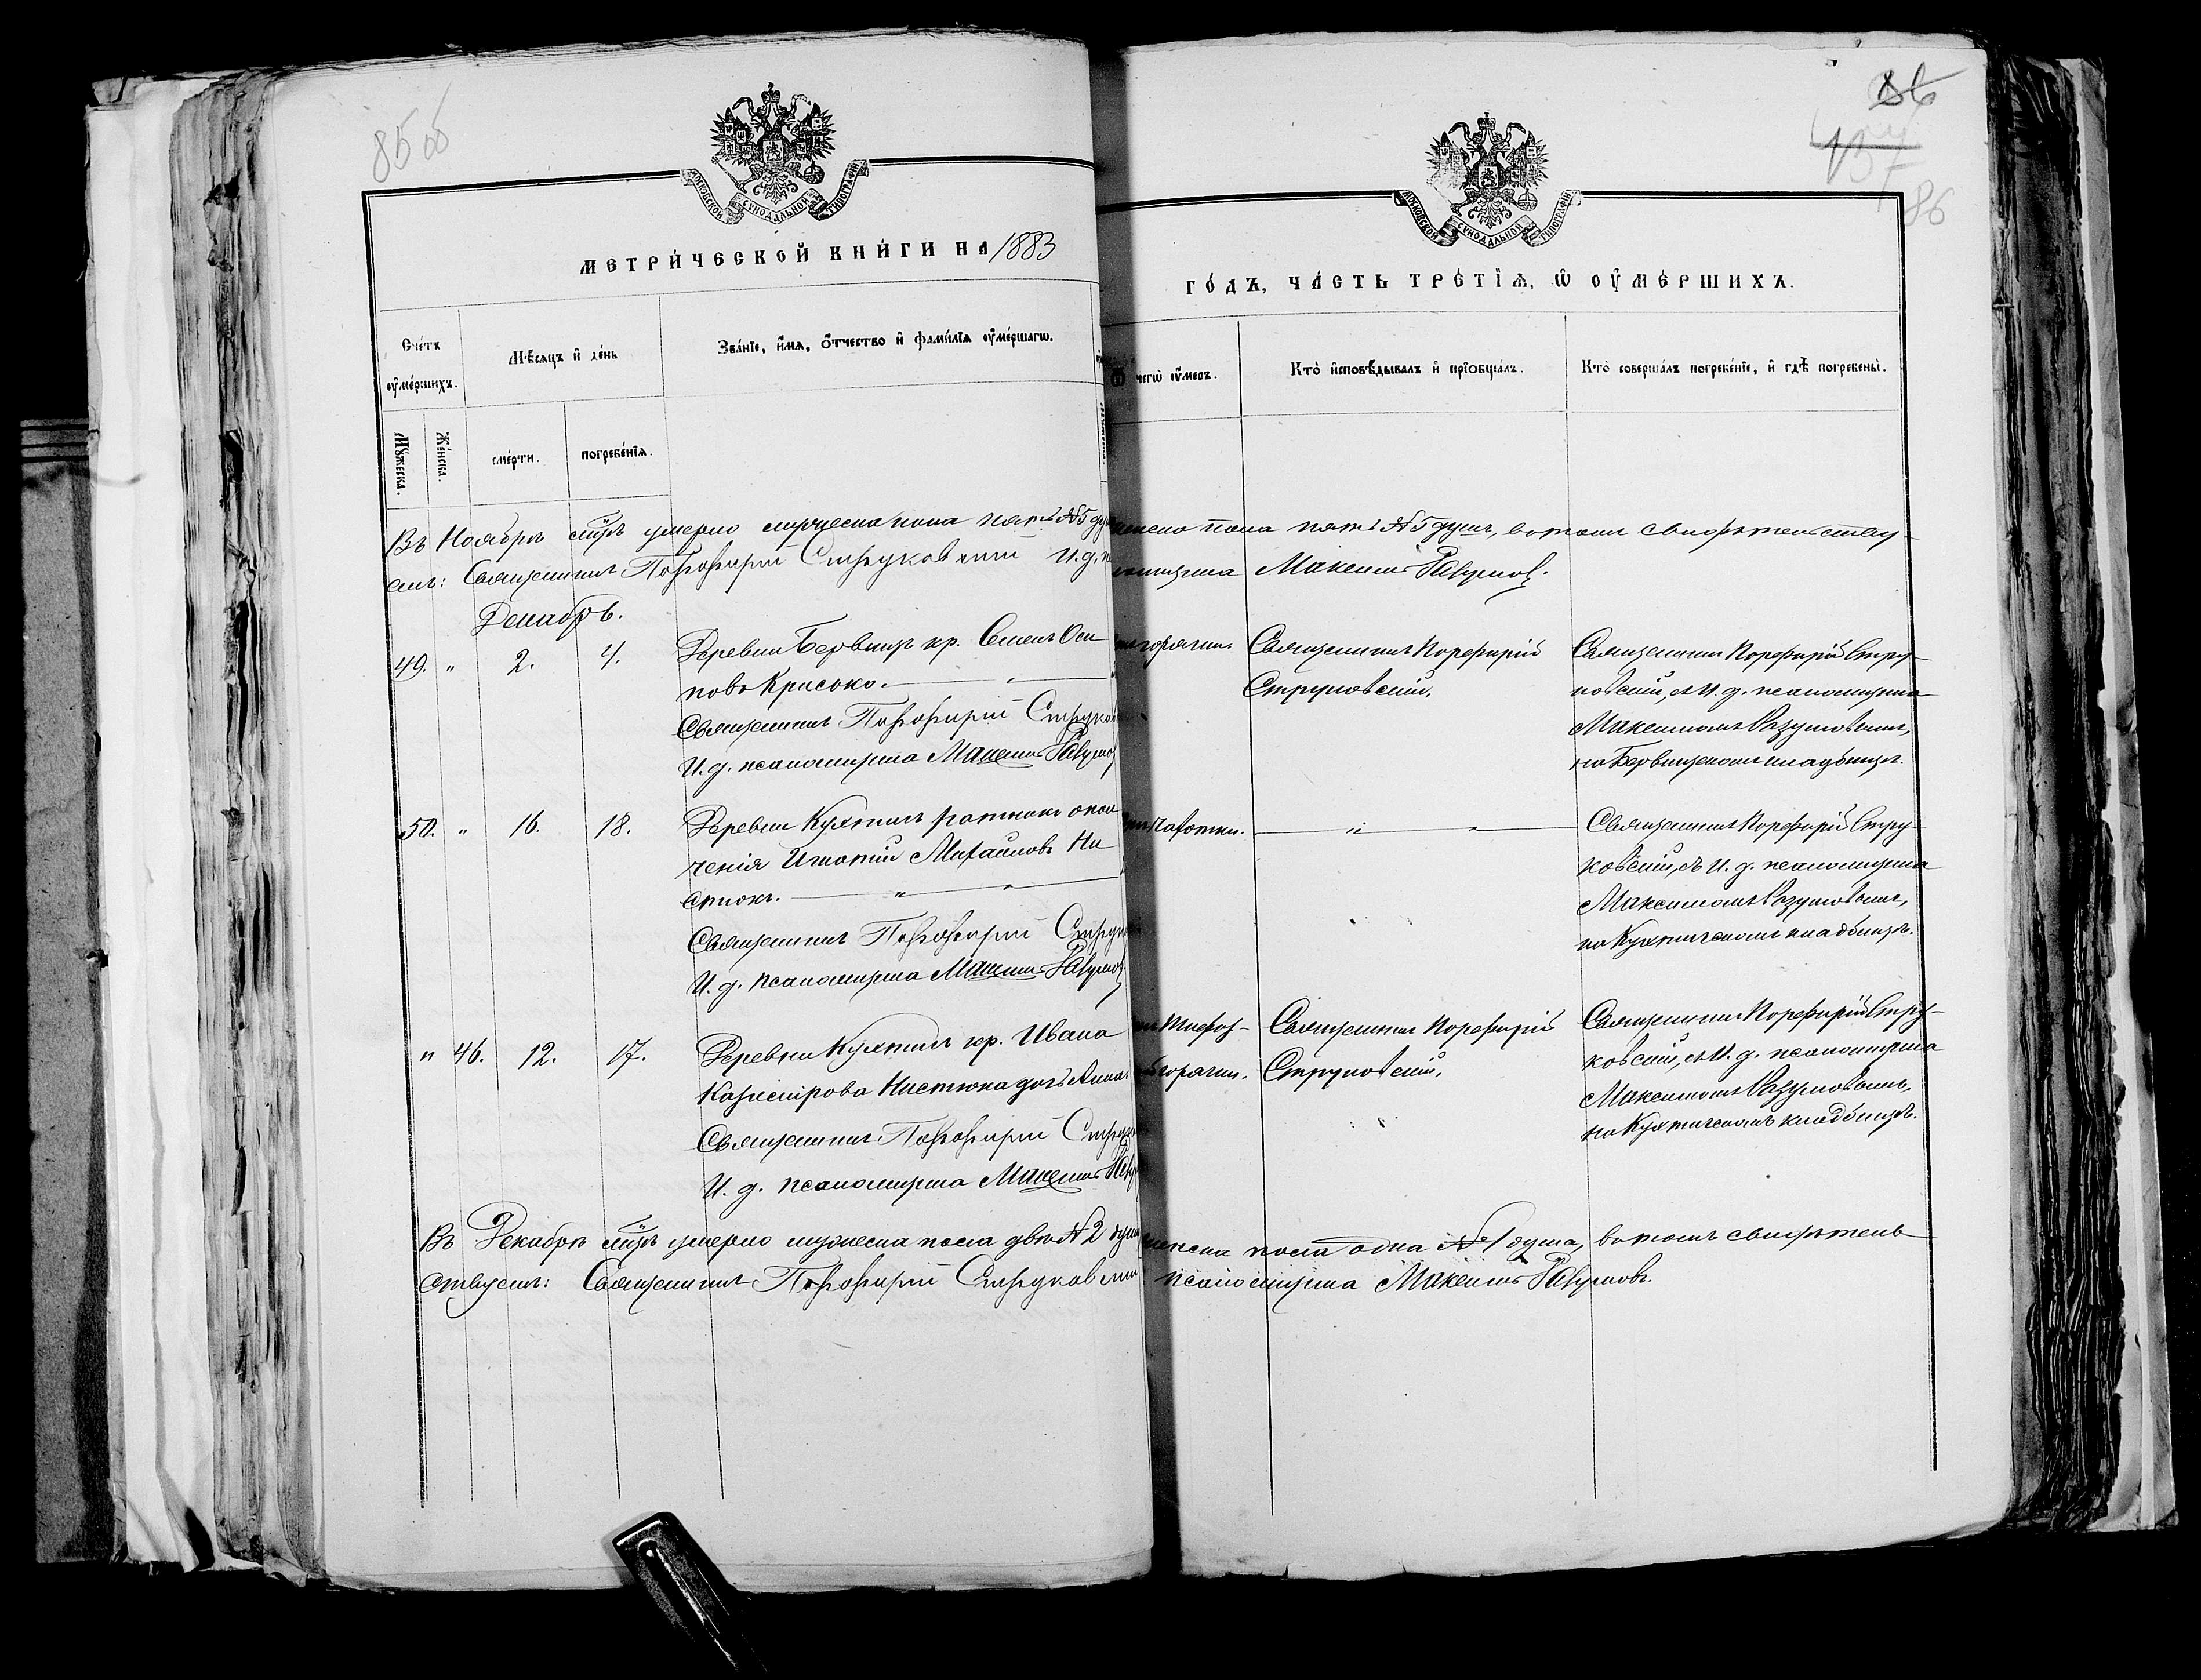 85 об
86
137
86
МОСКОВСКОЙ СѴНОДАЛЬНОЙ ТИПОГРАФІИ
МОСКОВСКОЙ СѴНОДАЛЬНОЙ ТИПОГРАФІИ
МЕТРИ́ЧЕСКОЙ КНИ́ГИ НА 1883
ГО́ДЪ, ЧА́СТЬ ТРЕ́ТІѦ, Ѡ ОУ҆МЕ́РШИХЪ.
Сче́тъ оу҆ме́ршихъ.
Мѣ́сяцъ и҆ де́нь
Зва́нїе, и҆́мя, ѻ҆́тчество и҆ фами́лїя оу҆ме́ршагѡ.
Ѿ чегѡ̀ оу҆́меръ.
Кто̀ и҆сповѣ́дывалъ и҆ прїобща́лъ.
Кто̀ соверша́лъ погребе́нїе, и҆ гдѣ̀ погребены̀.
Мꙋ́жеска.
Же́нска.
сме́рти.
погребе́нїя.
Въ Ноябрѣ мцѣ умерло мужеска пола пять №5 ду
женска пола пять №5 душъ, въ томъ свидѣтельству-
емъ: Священникъ Порфирий Струковский И. д.
псаломщика Максимъ Разумов.
Декабрь.
49. " 2. 4. Деревни Бервищъ кр. Семенъ Оси
повъ Крисько.
Священникъ Порфирий Струков
И. д. псаломщика Максимъ Разумов
горячки.
Священникъ Порфирій
Струковскій.
Священникъ Порфирій Стру-
ковскій, съ И. д. псаломщика
Максимомъ Разумовымъ,
на Бервищскомъ кладбищѣ.
50. " 16. 18. Деревни Кухтичъ ратникъ опол
ченія Игнатій Михайловъ Ни
стюкъ.
Священникъ Порфирий Струк
И. д. псаломщика Максимъ Разумов
чахотки.
Священникъ Порфирій Стру-
ковскій, съ И. д. псаломщика
Максимомъ Разумовымъ,
на Кухтичскомъ кладбищѣ.
" 46. 12. 17. Деревни Кухтичъ кр. Ивана
Казимірова Нистюка дочь Анна.
Священникъ Порфирий Струк
И. д. псаломщика Максимъ Разу
тифоз-
горячки.
Священникъ Порфирій
Струковскій.
Священникъ Порфирій Стру-
ковскій, съ И. д. псаломщика
Максимомъ Разумовымъ,
на Кухтичскомъ кладбищѣ.
Въ Декабрѣ мцѣ умерло мужеска пола двѣ №2 души
женска пола одна №1 душа, въ томъ свидѣтель
ствуемъ: Священникъ Порфирий Струковский
псаломщика Максимъ Разумовъ.